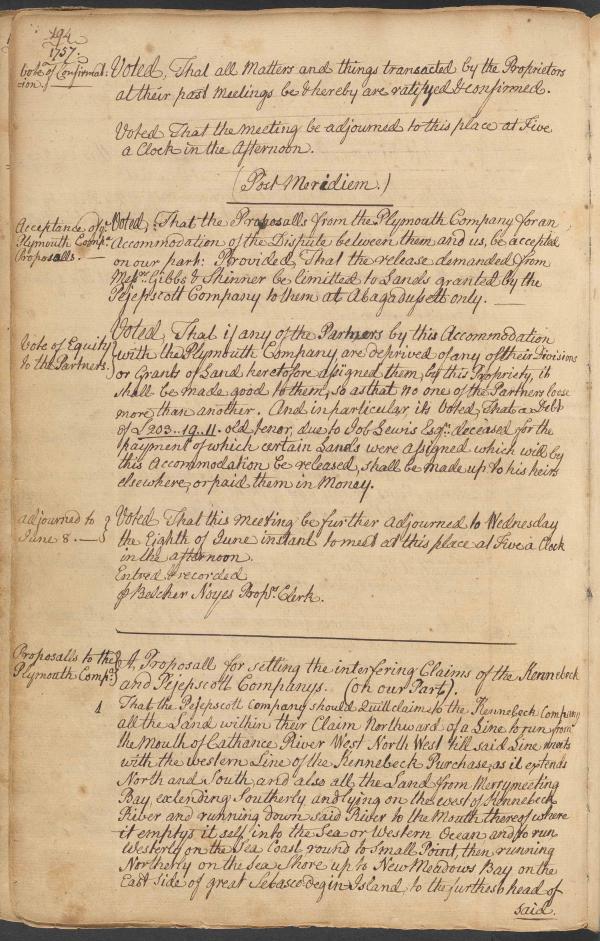 194
1757.
Vote of Confirmat:
ion.
Voted, That all Matters and things transacted by the Proprietors
at their past Meetings be & hereby are ratifyed & confirmed.
Voted That the Meeting be adjourned to this place at Five
a Clock in the Afternoon.
(Post Meridiem.)
Acceptance of ye
Plymouth Compa
Proposalls. —
Voted, That the Proposalls from the Plymouth Company for an
Accommodation of the Dispute between them and us, be accepted
on our part: Provided, That the release demanded from
Messrs Gibbs & Skinner be limitted to Lands granted by the
Pejepscott Company to them at Abagadusett only. —
Vote of Equity
to the Partners.
Voted, That if any of the Partners by this Accommodation
with the Plymouth Company are deprived of any of their Divisions
or Grants of Land heretofore assigned them by this Propriety, it
shall be made good to them, so as that no one of the Partners loose
more than another. And in particular its Voted, That a Debt
of £203..19.11. old tenor, due to Job Lewis Esqr. deceased for the
payment of which certain Lands were assigned which will by
this Accommodation be released, shall be made up to his heirs
elsewhere, or paid them in Money.
Adjourned to
June 8. —
Voted That this Meeting be further adjourned to Wednesday
the Eighth of June instant to meet at this place at Five a Clock
in the afternoon.
Entred & recorded
⅌ Belcher Noyes Props. Clerk.
Proposalls to the
Plymouth Compa
A, Proposall for setling the interfering Claims of the Kennebeck
and Pejepscott Companys. (on our Part).
1 That the Pejepscott Company should Quitt claim to the Kennebeck Company
all the Land within their Claim Northward of a Line to run from
the Mouth of Cathance River West North West till said Line meets
with the western Line of the Kennebeck Purchase, as it extends
North and South, and also all the Land from Merrymeeting
Bay, extending Southerly and lying on the west of Kennebeck
River and running down said River to the Mouth thereof where
it emptys it self into the Sea or Western Ocean and to run
Westerly on the Sea Coast round to Small Point, then running
Northerly on the Sea Shore up to New Meadows Bay on the
East side of great Sebascodegin Island, to the furthest head of
said.